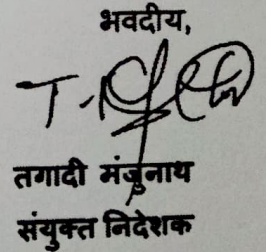 भवदीय,
तगादी मंजुनाथ
संयुक्त निदेशक